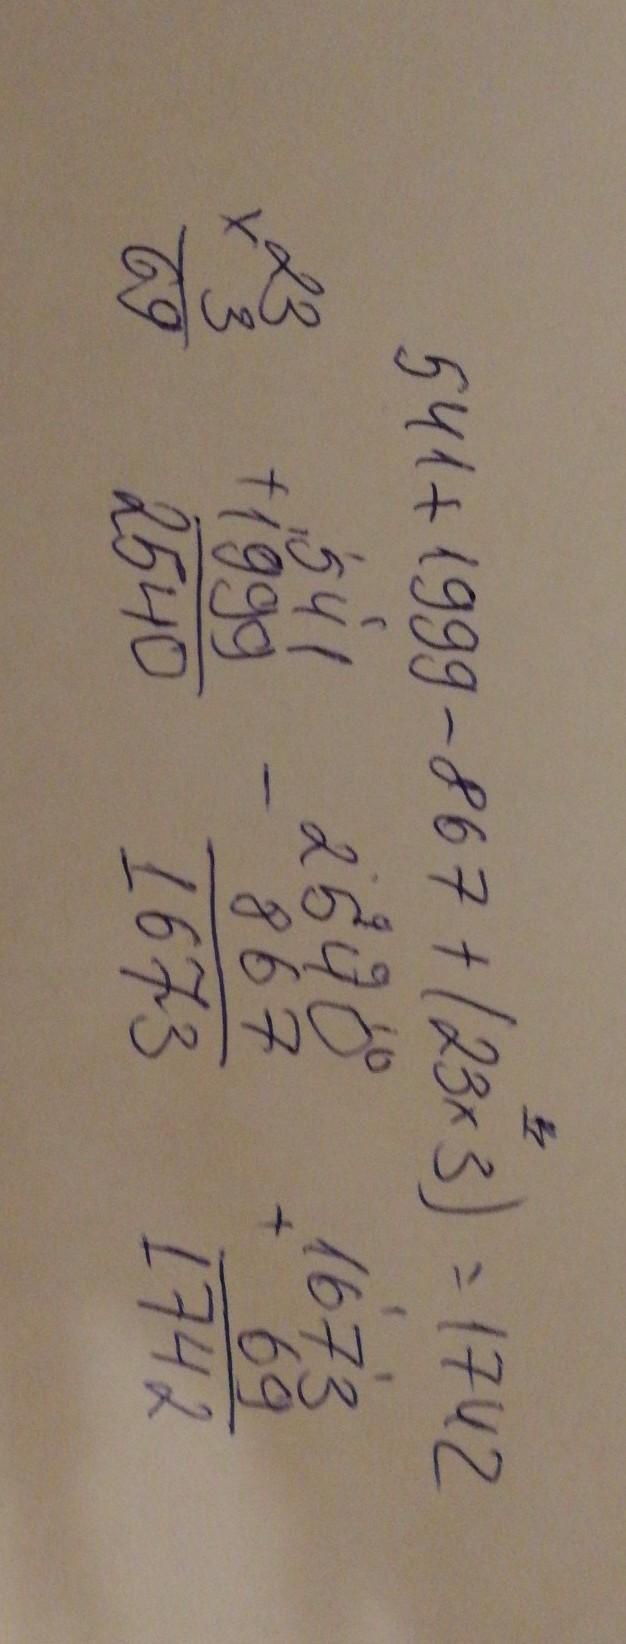 541+1999-867+(23×3)=1742
×23
3
69
541
+1999
2540
-2540
867
1673
+1673
69
1742